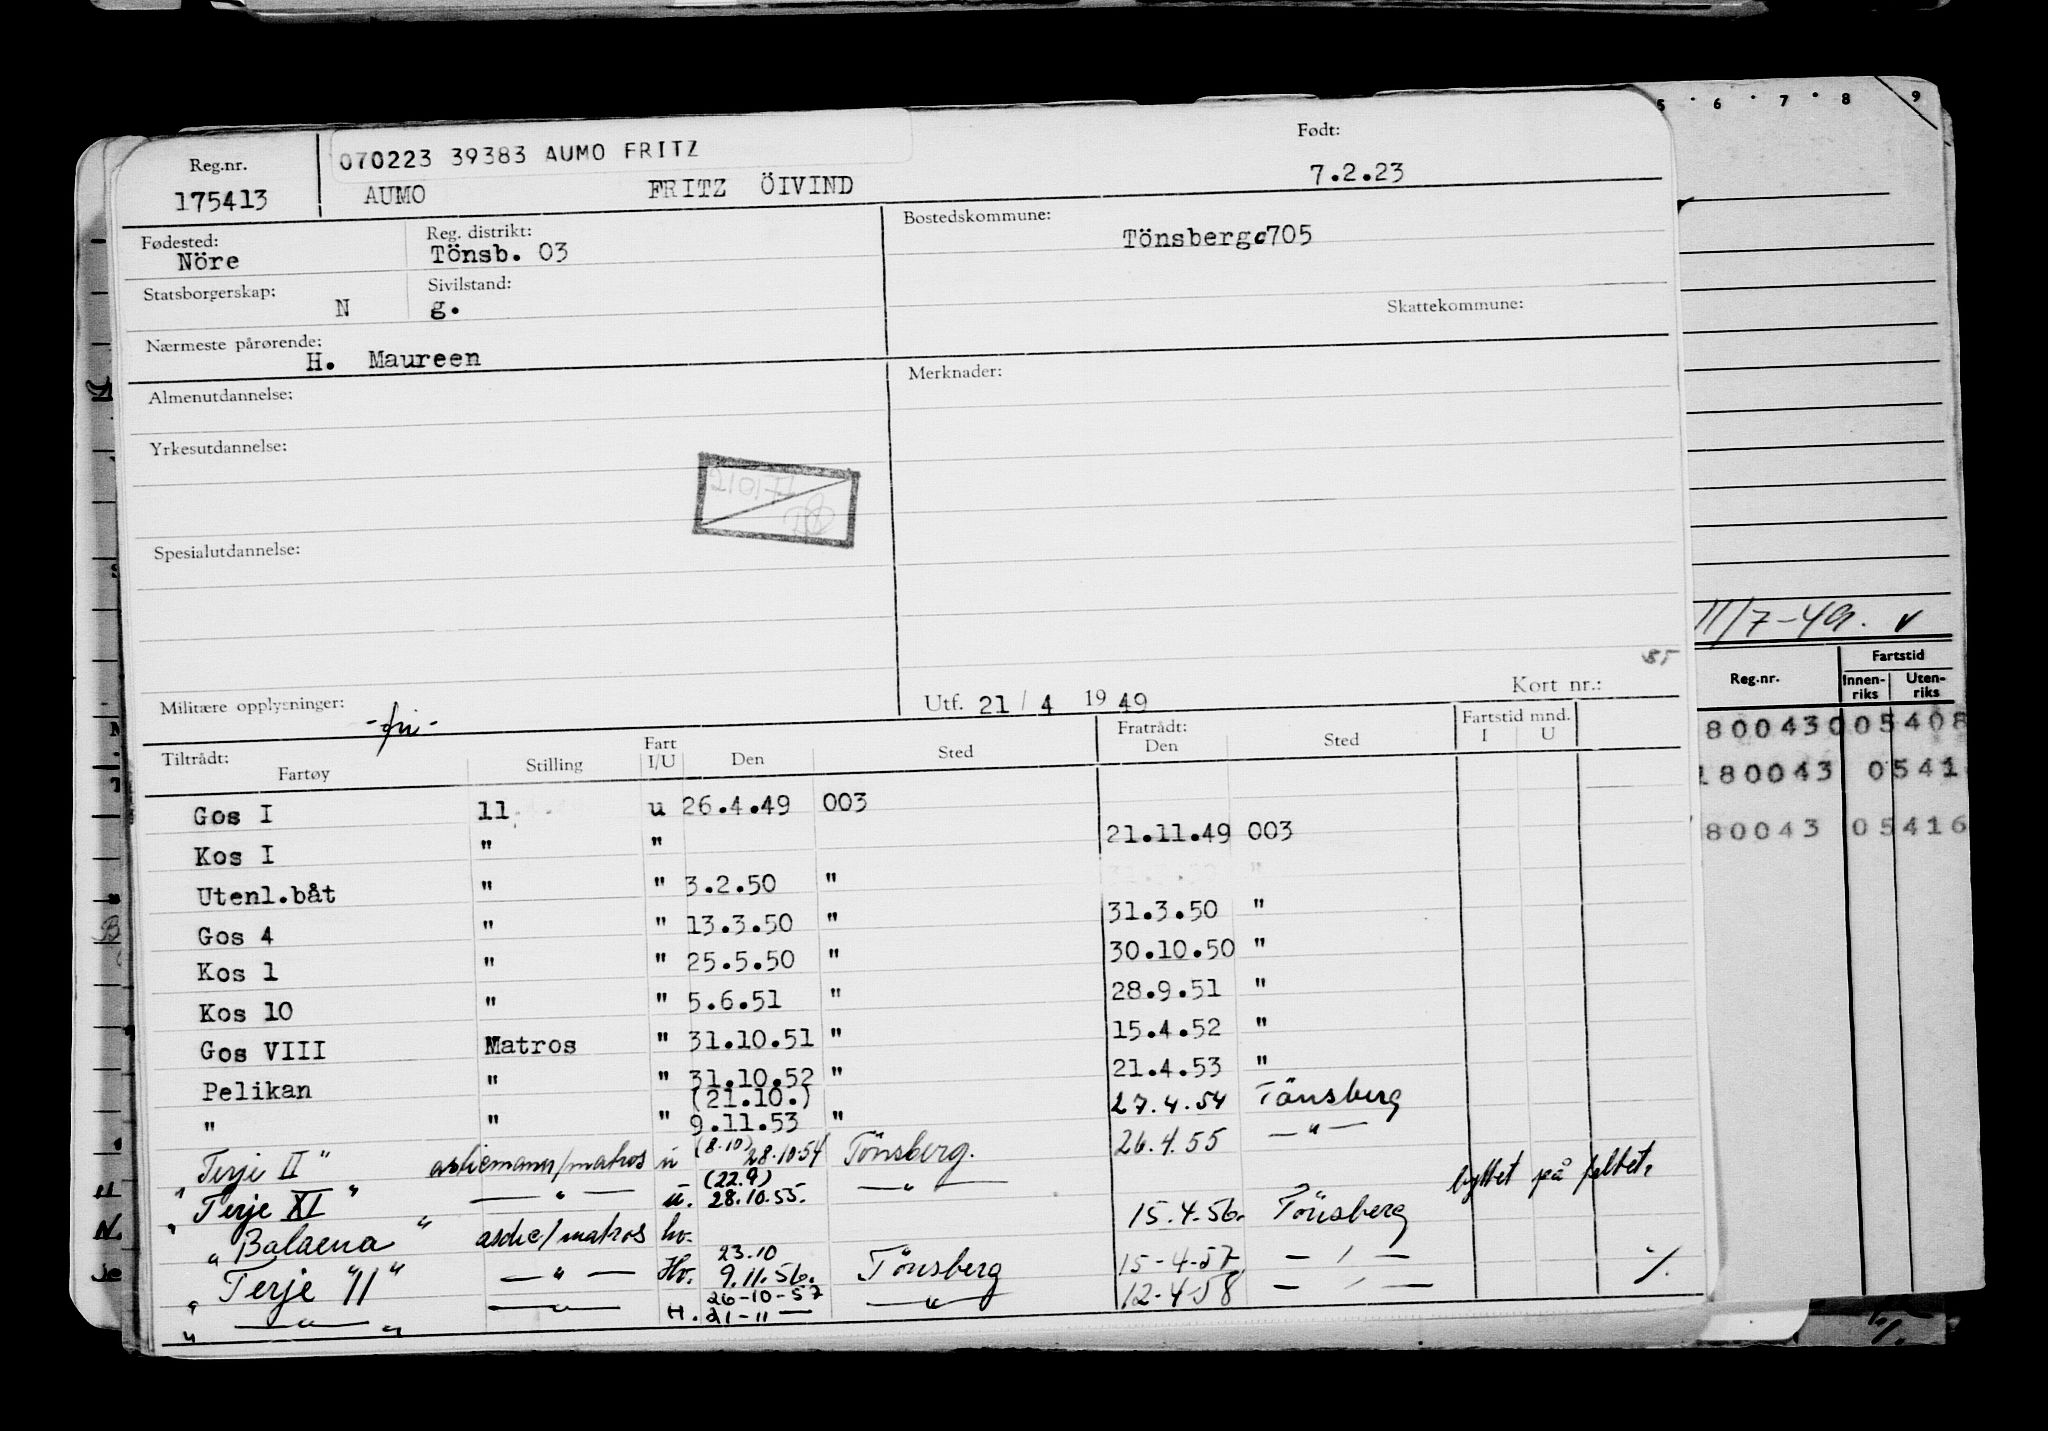 5 · 6 · 7 · 8 9
Reg.nr. 070223 39383 AUMO FRITZ Født:
175413 AUMO FRITZ ÖIVIND 7.2.23
Fødested: Reg. distrikt: Bostedskommune:
Nöre Tönsb. 03 Tönsberg 705
Statsborgerskap: N Sivilstand: g. Skattekommune:
Nærmeste pårørende: H. Maureen
Almenutdannelse: Merknader:
Yrkesutdannelse:
Spesialutdannelse:
Militære opplysninger: -fri- Utf. 21 / 4 19 49 Kort nr.:
Tiltrådt: Fartøy Stilling Fart I/U Den Sted Fratrådt: Den Sted Fartstid mnd. I U
Gos I ll u 26.4.49 003
Kos I " " 21.11.49 003
Utenl.båt " " 3.2.50 "
Gos 4 " " 13.3.50 " 31.3.50 "
Kos 1 " " 25.5.50 " 30.10.50 "
Kos 10 " " 5.6.51 " 28.9.51 "
Gos VIII Matros " 31.10.51 " 15.4.52 "
Pelikan " " 31.10.52 " 21.4.53 "
(21.10.)
" " " 9.11.53 " 27.4.54 Tönsberg
"Terje II" matros u (8.10) 28.10.54 Tönsberg. 26.4.55 — " —
"Terje XI" — " — u. (22.9) 28.10.55. — " — byttet på feltet.
"Balaena" matros hv. 15.4.56. Tönsberg
"Terje "11" — " — Hv. 23.10 9.11.56. Tönsberg 15-4-57 — " — %
" — " — " — " — H. 26-10-57 21-11 — — " — 12-4-58 — " —
11/7-49. v
Reg.nr. Fartstid
Innen-riks Uten-riks
800430 05408
180043 0541
80043 05416